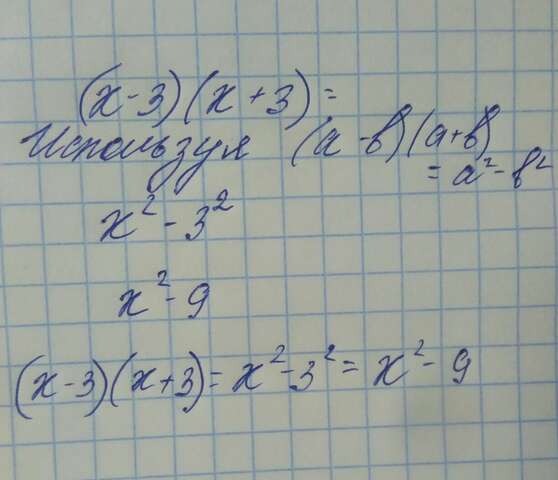 (x-3)(x+3)=
Используя (a-b)(a+b)
= a²-b²
x²-3²
x²-9
(x-3)(x+3)= x²-3²= x²-9